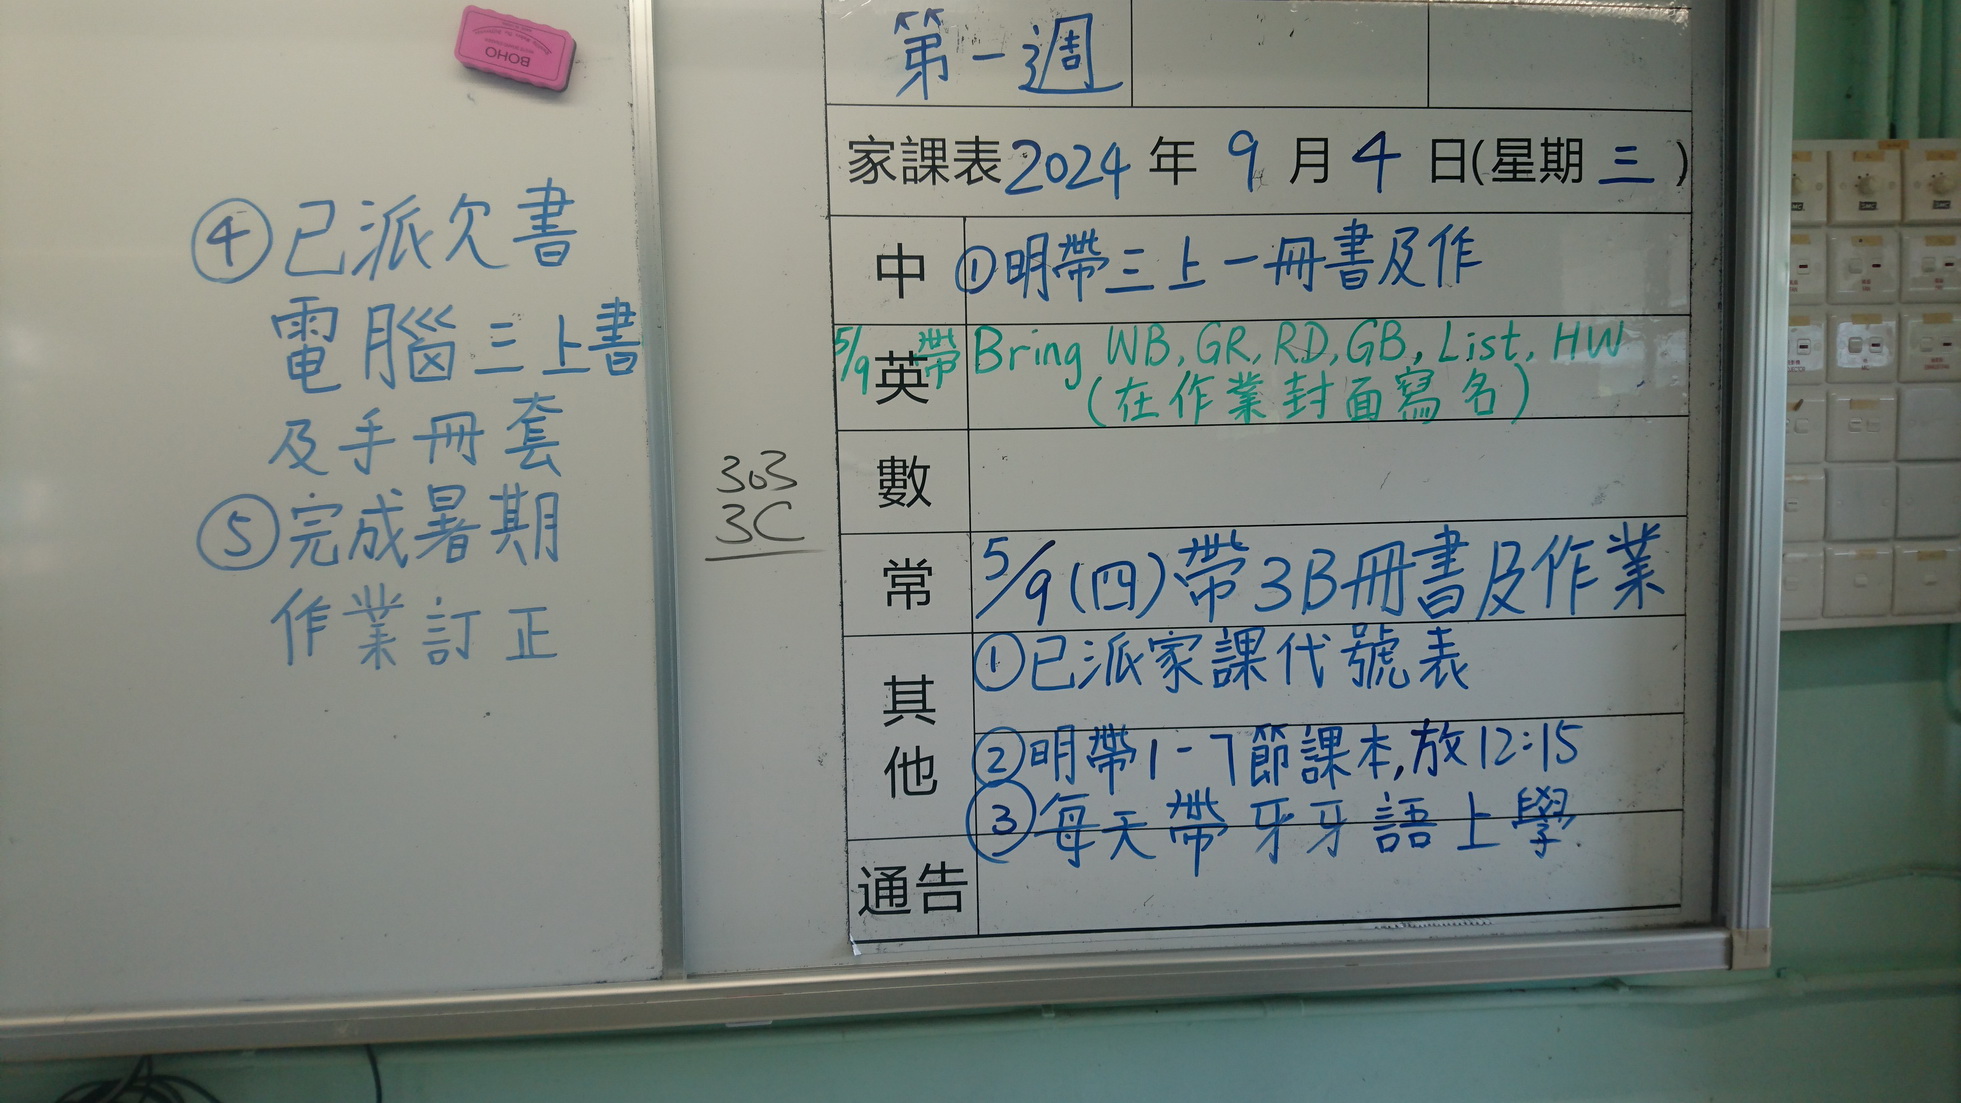 BOHO
第一週
家課表2024年9月4日(星期三)
中 ①明帶三上一冊書及作
英 5/9帶 Bring WB, GR, RD, GB, List, HW
(在作業封面寫名)
數
常 5/9(四)帶3B冊書及作業
其他 ①已派家課代號表
②明帶1-7節課本,放12:15
③每天帶牙牙語上學
通告
303
3C
④已派欠書
電腦三上書
及手冊套
⑤完成暑期
作業訂正